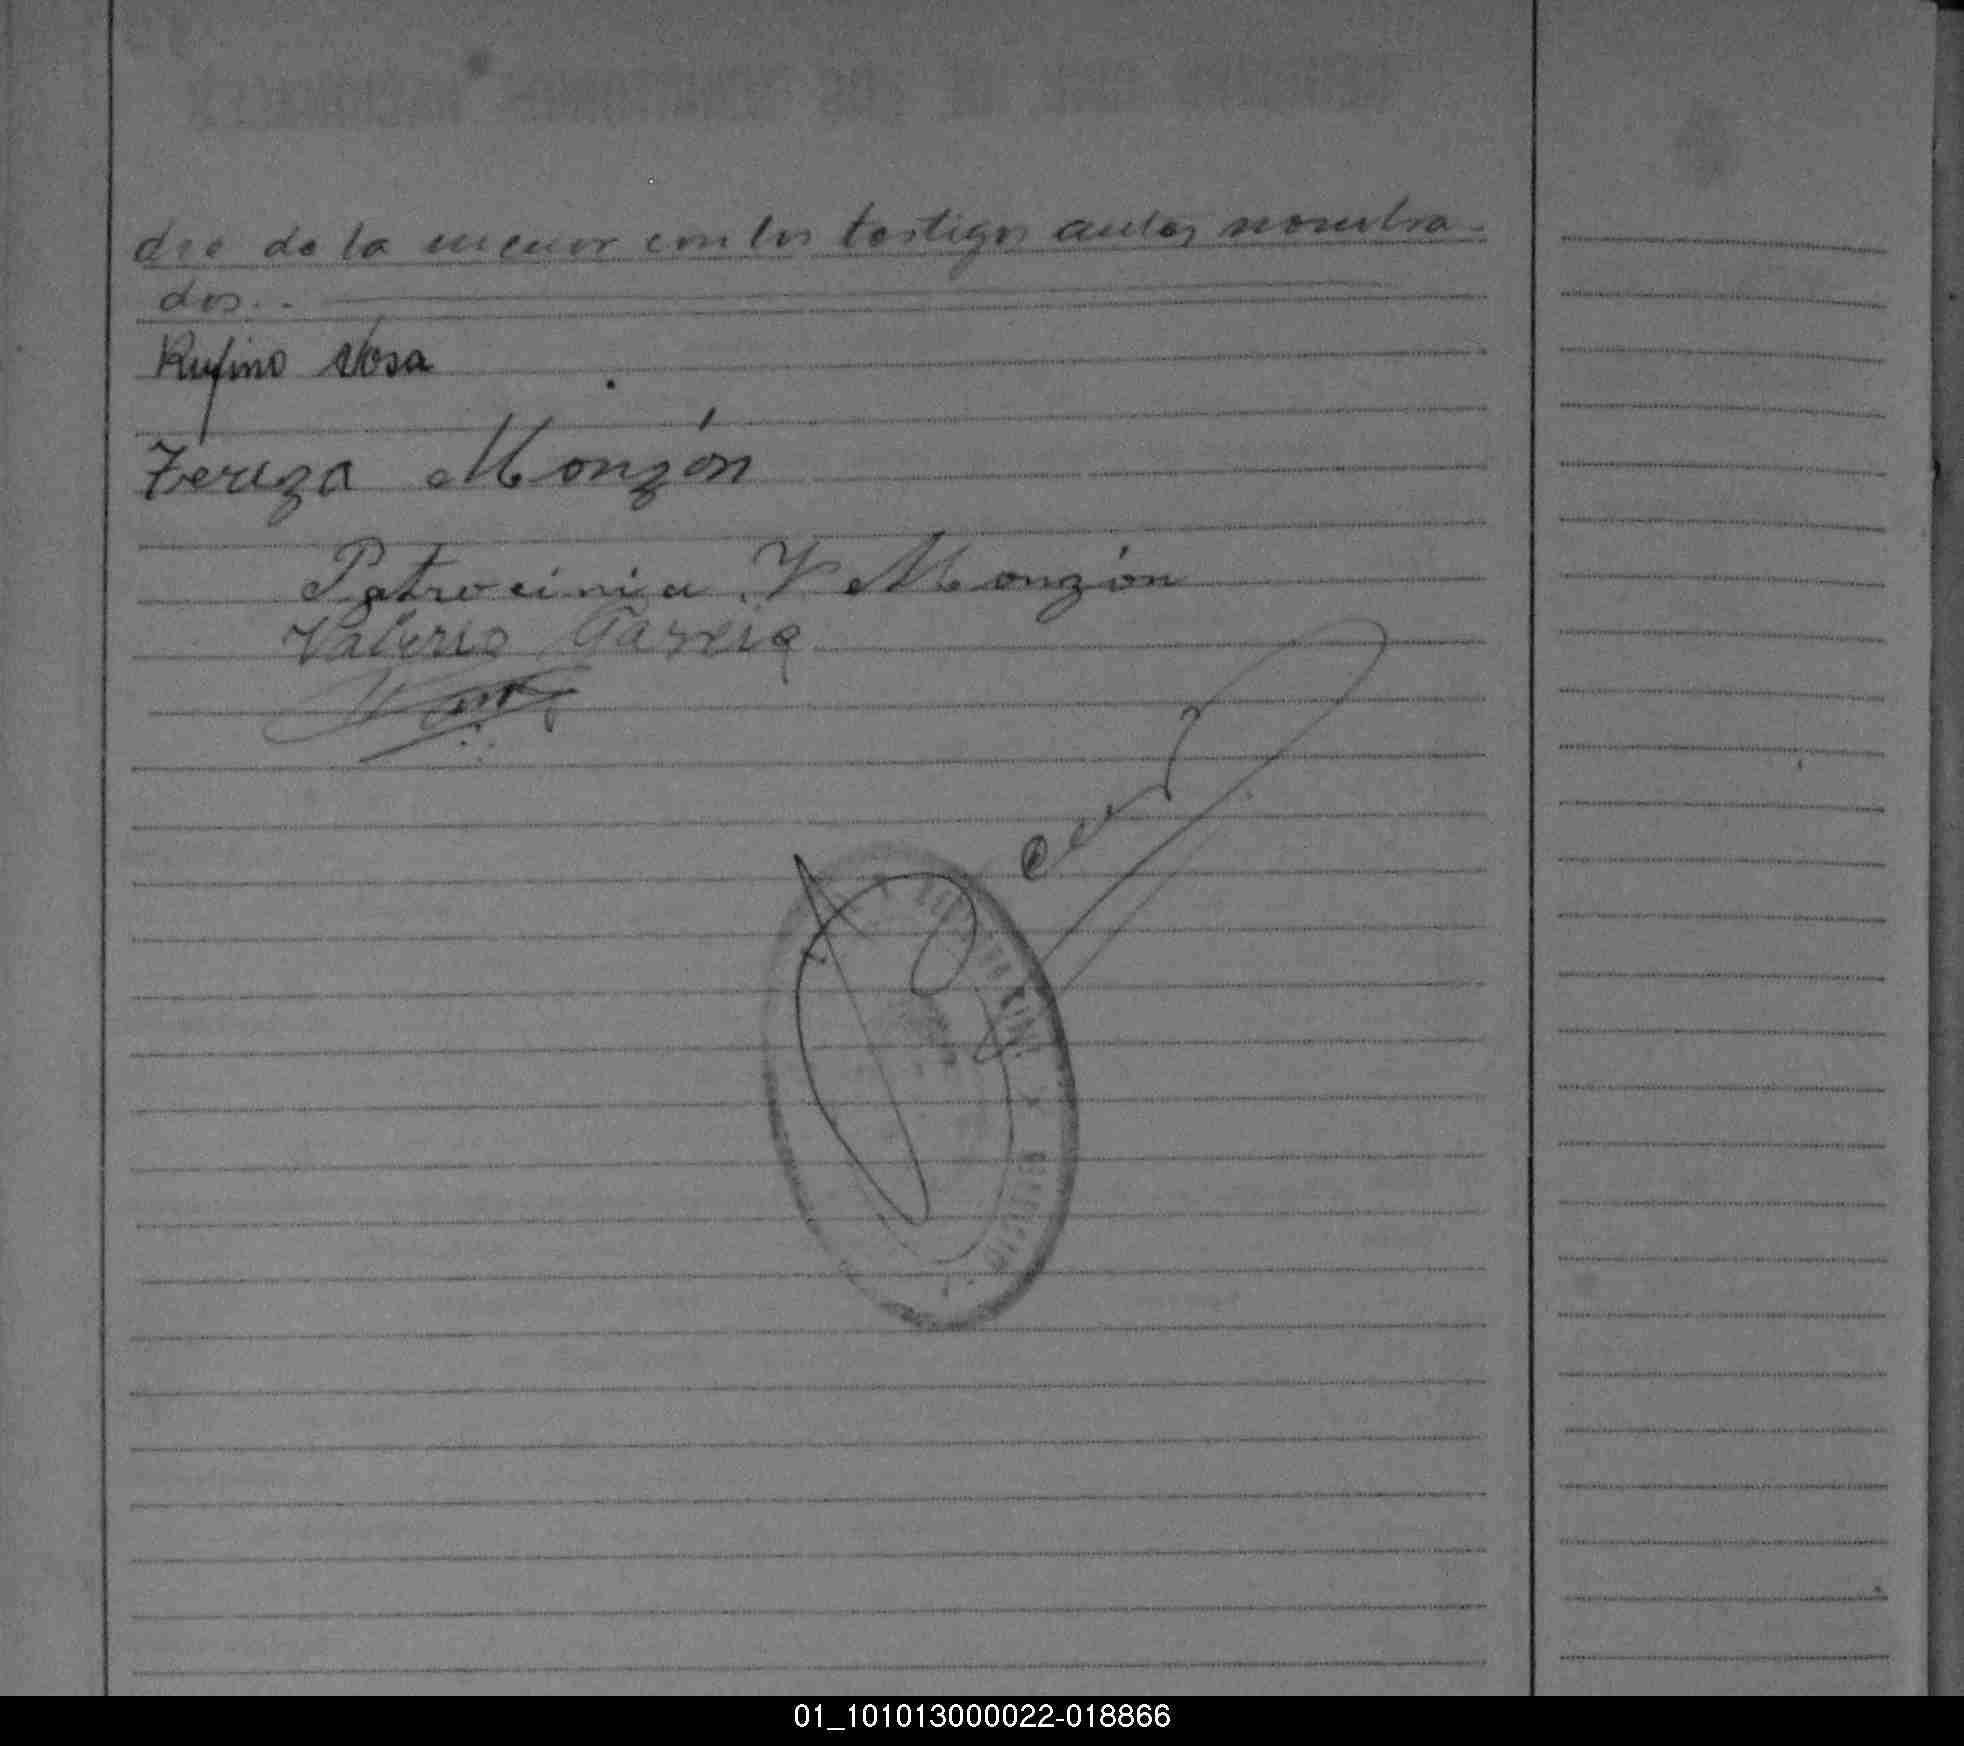 dre de la menor con los testigos antes nombra-
dos..
Rufino Sosa
Tereza Monzón
Patrocinia Y Monzón
Valerio Garcia
01_101013000022-018866